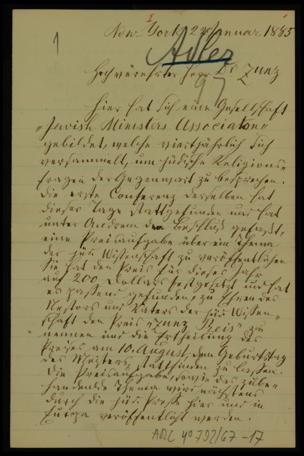 1
New York 29 Januar 1885
Adler
97
Hochverehrter Herr Dr Zunz
Hier hat sich eine Gesellschaft
"Jewish Ministers Association"
gebildet, welche vierteljährlich sich
versammelt, um jüdische Religions-
fragen der Gegenwart zu besprechen.
Die erste Conferenz derselben hat
dieser Tage stattgefunden und hat
unter Anderem den Beschluß gefaßt,
eine Preisaufgabe über ein Thema
der jüd Wissenschaft zu veröffentlichen.
Sie hat den Preis für dieses Jahr
auf 200 Dollars festgesetzt und hat
es passend gefunden, zu Ehren des
Nestors und Vaters der jüd Wissen-
schaft den Preis "Zunz Preis" zu
nennen und die Ertheilung des
Preises am 10. August, dem Geburtstag
des Meisters stattfinden zu lassen.
Die Preisaufgabe, sowie das zu be-
handelnde Thema wird nächstens
durch die jüd Presse hier und in
Europa veröffentlicht werden.
ARC 4° 792/G7-17